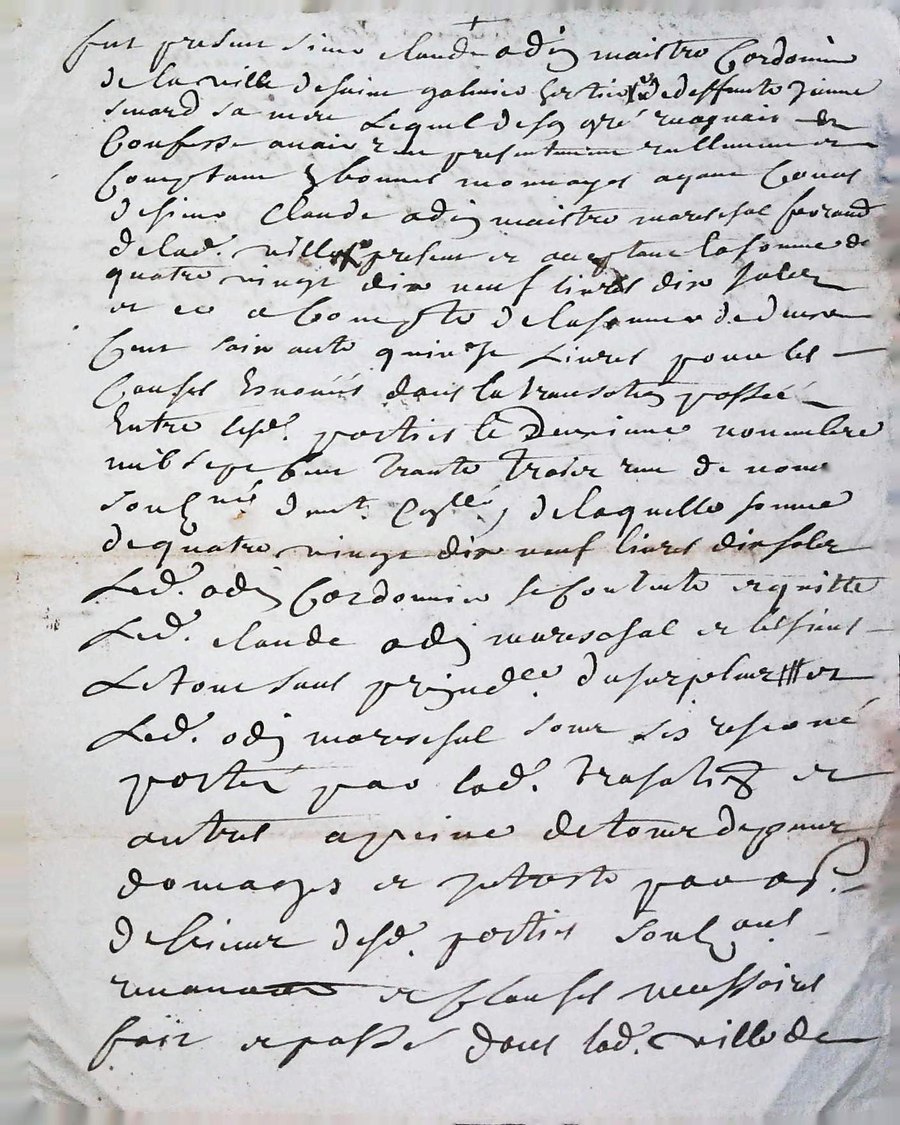 fut present sieur claude odin maistre Cordonnier
de la ville de saint galmier heritier de deffunte Jeanne
sa mere Lequel de son gré
Confesse avoir reçu presentement reallement et
Comptant en bonnes monnoyes ayant Cours
de sieur Claude odin maistre mareschal
de lad. ville present et acceptant la somme de
quatre vingt dix neuf livres dix solz
et ce a Compte de la somme de deux
Cent soixante quinze Livres pour les
Causes Enoncées dans la transaction passée
Entre lesd. parties le Deuxieme novembre
mil sept Cent trante troisz reçue de nous
soubné de laquelle somme
de quatre vingt dix neuf livres dix solz
Led. odin Cordonnier se Contente et quitte
Led. claude odin mareschal et les siens
Le tout sans prejudce. du surplus et
Led. odin mareschal
porté par lad. et
autres a peine de tous depens
domages et
desd. parties
et Clauses necessaires
fait et passé dans lad. ville de